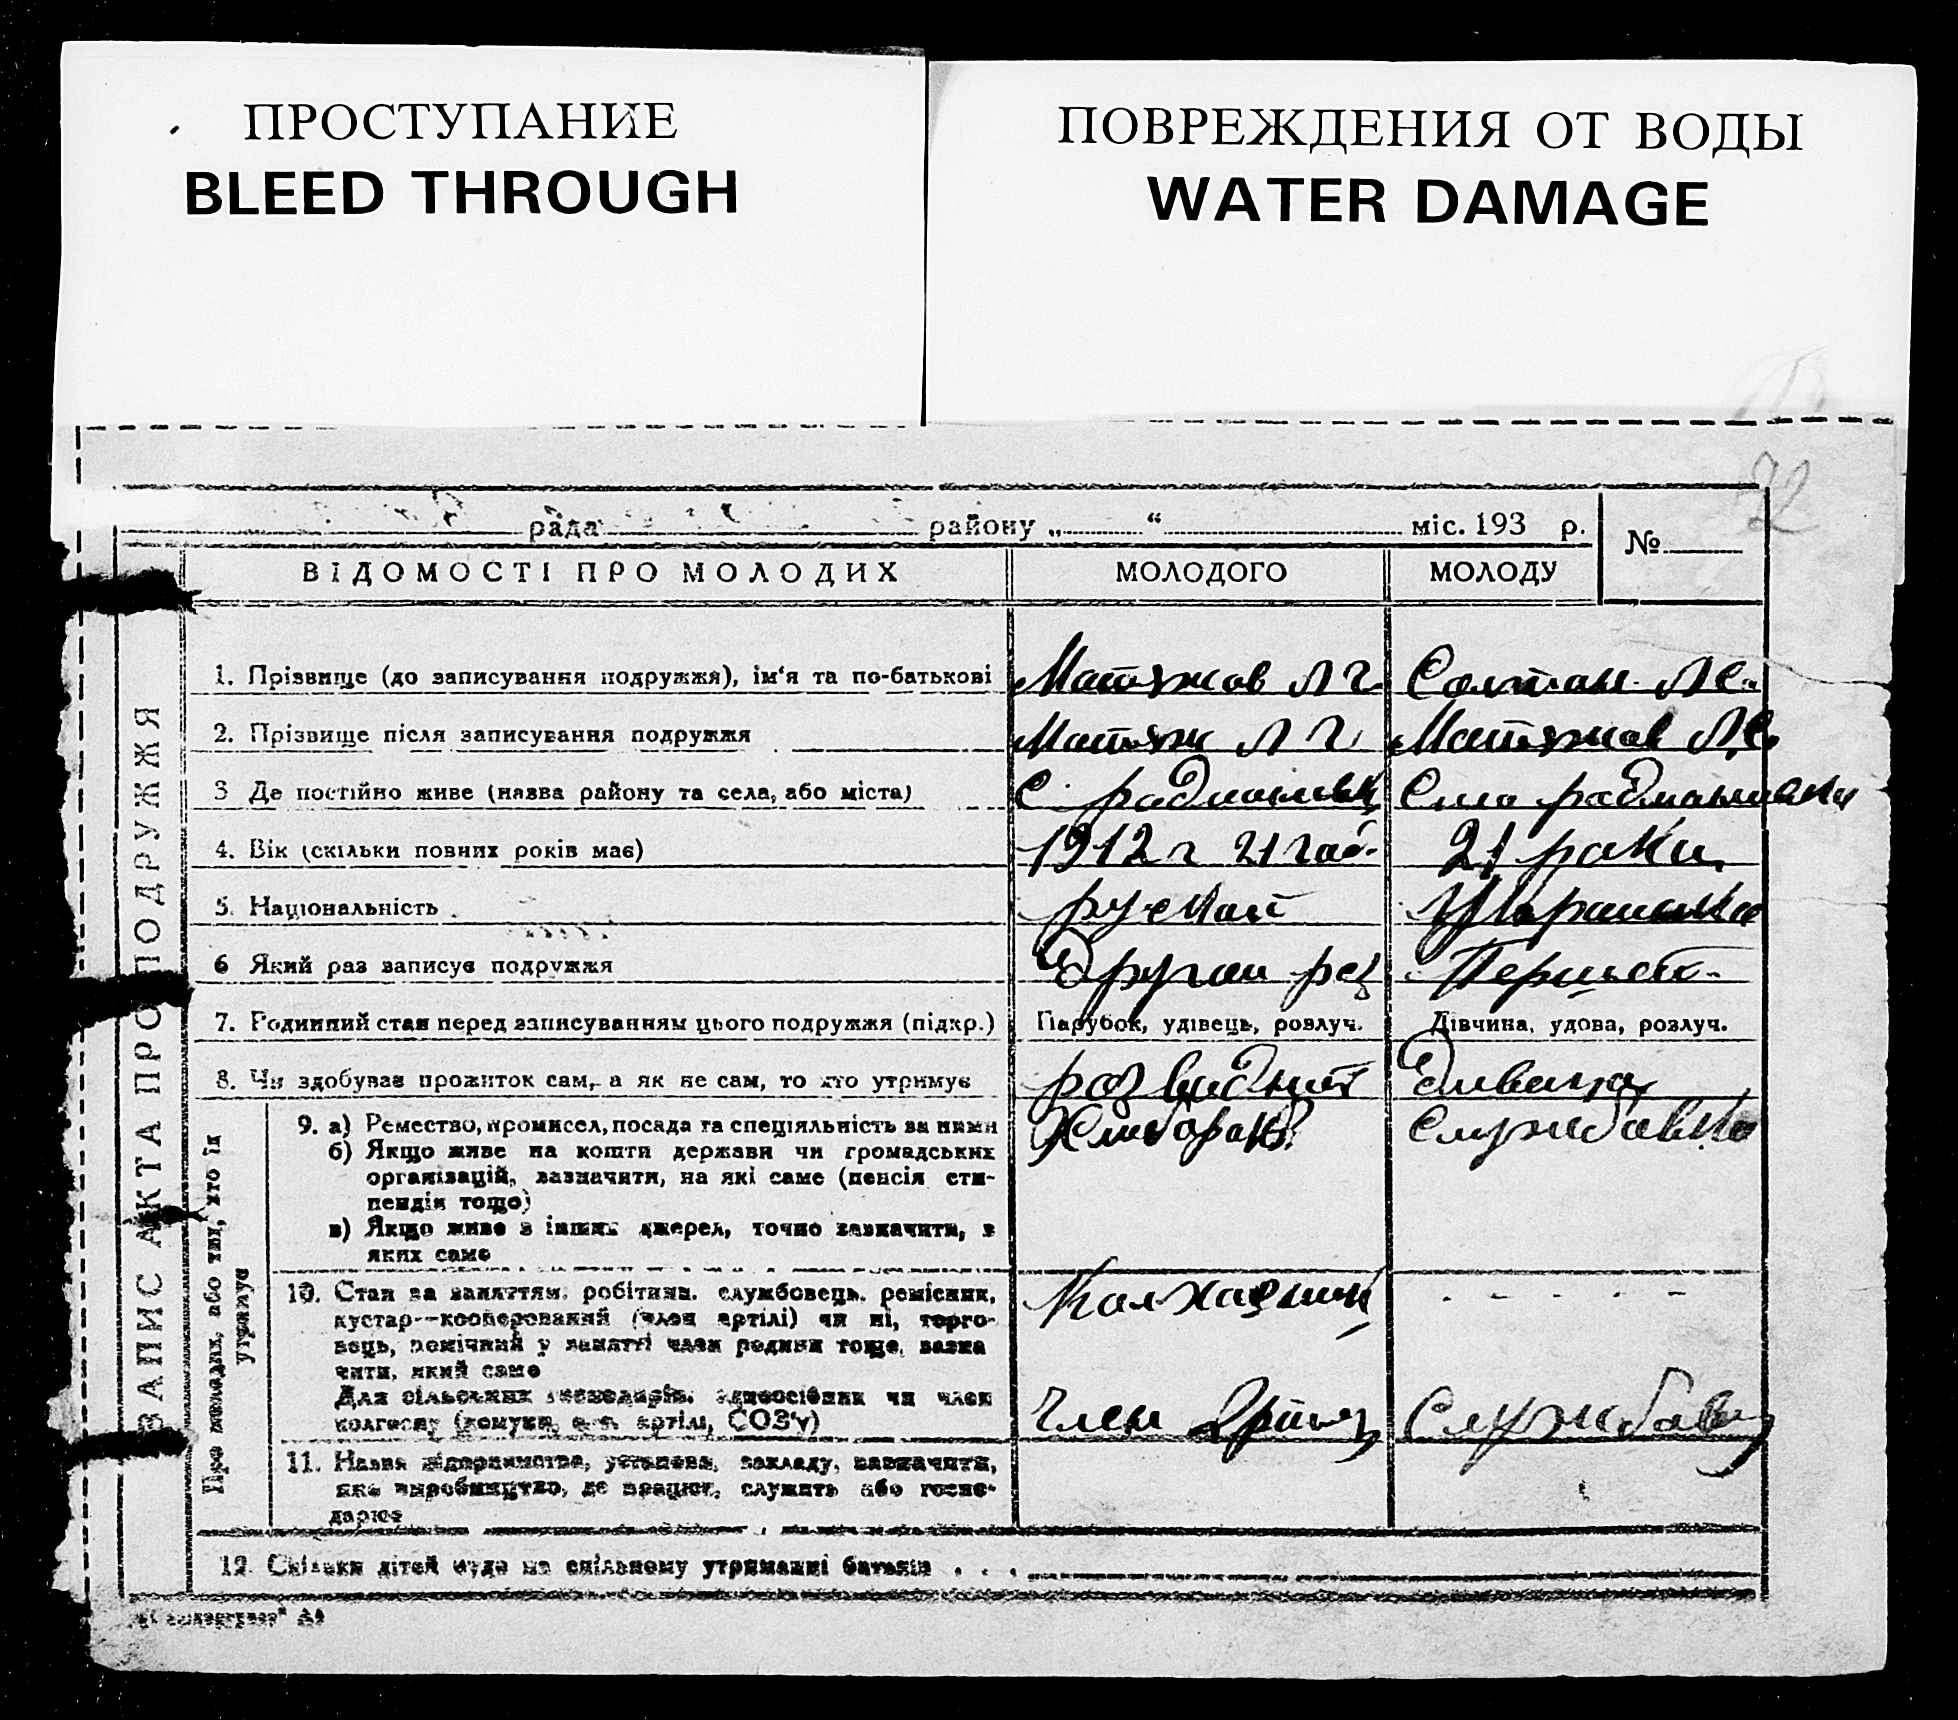 ПРОСТУПАНИЕ
BLEED THROUGH
ПОВРЕЖДЕНИЯ ОТ ВОДЫ
WATER DAMAGE
72
рада района „ “ міс. 193 р. №
ВІДОМОСТІ ПРО МОЛОДИХ МОЛОДОГО МОЛОДУ
ЗАПИС АКТА ПРО ПОДРУЖЖЯ
1. Прізвище (до записування подружжя), ім'я та по-батькові Матяжов Л Г. Солтан Л С.
2. Прізвище після записування подружжя Матяж Л Г. Матяжов Л.С.
3 Де постійно живе (назва району та села, або міста) С.
4. Вік (скільки повних років має) 1912 г 21 год. 21 роки
5. Національність руский Украинка
6 Який раз записує подружжя Другой раз
7. Родинний стан перед записуванням цього подружжя (підкр.) Парубок, удівець, розлуч. Дівчина, удова, розлуч.
8. Чи здобував прожиток сам, а як не сам, то хто утримує розвидний дивачка
Про молодих, або тих, хто їх утримує
9. а) Ремество, промисел, посада та спеціяльність за ними Хлибороб Службовка
б) Якщо живе на кошти держави чи громадських
організацій, зазначити, на які саме (пенсія сти-
пендія тощо)
в) Якщо живе з інших джерел, точно зазначити, з
яких саме
10. Стан за заняттям: робітник, службовець, ремісник, Калхазник - - - - -
кустар—кооперований (член артілі) чи ні, торго-
вець, помічний у занятті член родини тоще, зазна
чити, який саме
Для сільських господарів: одноосібник чи член
колгоспу (комуни, с.-г. артілі, СОЗ'у) Член
11. Назва підприємства, установи, закладу, зазначити,
яке виробництво, де працює, служить або госпо-
дарює
12. Скільки дітей буде на спільному утриманні батьків . . .